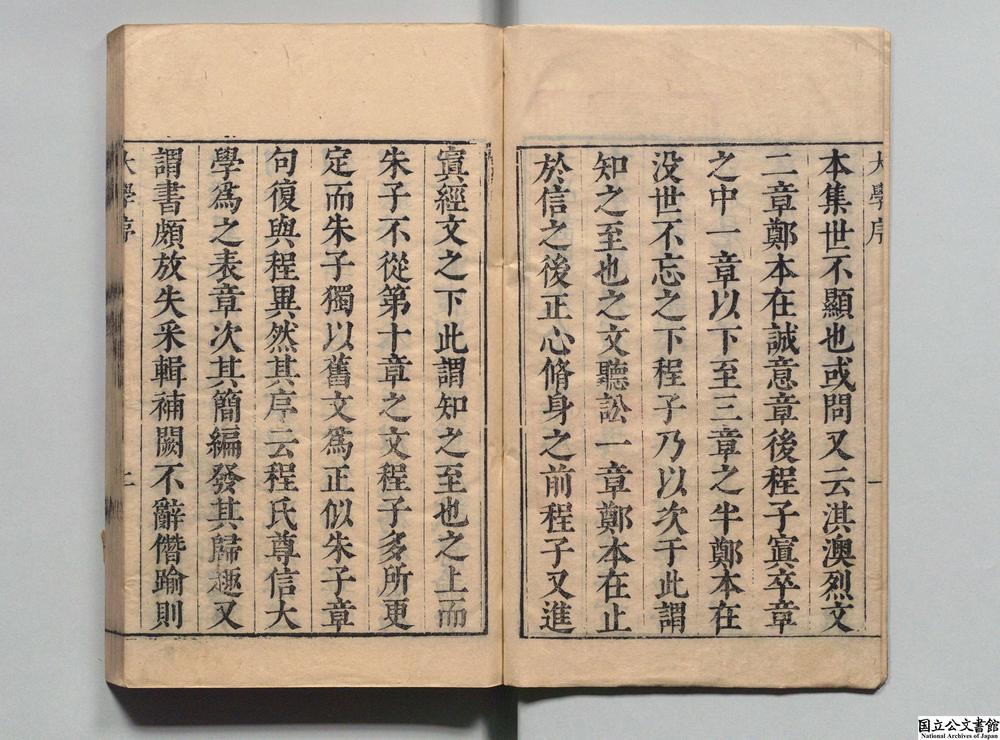 大學序
一
本集世不顯也或問又云淇澳烈文
二章鄭本在誠意章後程子寘卒章
之中一章以下至三章之半鄭本在
沒世不忘之下程子乃以次于此謂
知之至也之文聽訟一章鄭本在止
於信之後正心脩身之前程子又進
寘經文之下此謂知之至也之上而
朱子不從第十章之文程子多所更
定而朱子獨以舊文爲正似朱子章
句復與程異然其序云程氏尊信大
學爲之表章次其簡編發其歸趣又
謂書頗放失采輯補闕不辭僭踰則
大學序
国立公文書館
National Archives of Japan